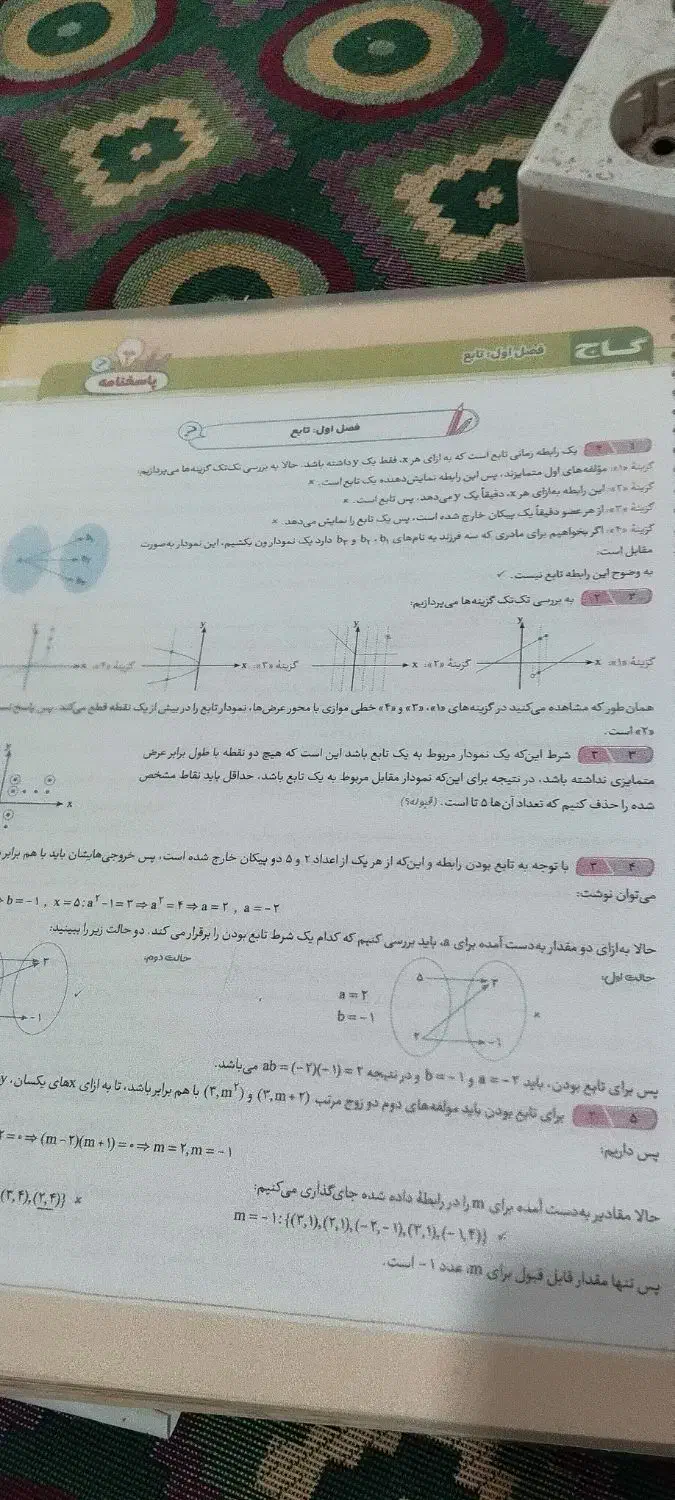 گاج
فصل اول: تابع
پاسخنامه
فصل اول: تابع
۱ ۴ یک رابطه زمانی تابع است که به ازای هر x، فقط یک y داشته باشد. حالا به بررسی تک‌تک گزینه‌ها می‌پردازیم:
گزینهٔ «۱»: مؤلفه‌های اول متمایزند، پس این رابطه نمایش‌دهنده یک تابع است. ×
گزینهٔ «۲»: این رابطه به‌ازای هر x، دقیقاً یک y می‌دهد، پس تابع است. ×
گزینهٔ «۳»: از هر عضو دقیقاً یک پیکان خارج شده است، پس یک تابع را نمایش می‌دهد. ×
گزینهٔ «۴»: اگر بخواهیم برای مادری که سه فرزند به نام‌های b₁، b₂ و b₃ دارد یک نمودار ون بکشیم، این نمودار به‌صورت
مقابل است:
به وضوح این رابطه تابع نیست. ✓
۲ ۲ به بررسی تک‌تک گزینه‌ها می‌پردازیم:
گزینهٔ «۱»: x y
گزینهٔ «۲»: x y
گزینهٔ «۳»: x y
گزینهٔ «۴»: x y
همان‌طور که مشاهده می‌کنید در گزینه‌های «۱»، «۳» و «۴» خطی موازی با محور عرض‌ها، نمودار تابع را در بیش از یک نقطه قطع می‌کند. پس پاسخ
«۲» است.
۳ ۲ شرط این‌که یک نمودار مربوط به یک تابع باشد این است که هیچ دو نقطه با طول برابر عرض
متمایزی نداشته باشد، در نتیجه برای این‌که نمودار مقابل مربوط به یک تابع باشد، حداقل باید نقاط مشخص
شده را حذف کنیم که تعداد آن‌ها ۵ تا است. (قبوله؟)
x
۴ ۳ با توجه به تابع بودن رابطه و این‌که از هر یک از اعداد ۲ و ۵ دو پیکان خارج شده است، پس خروجی‌هایشان باید با هم برابر
می‌توان نوشت:
b = −۱ , x = ۵: a² − ۱ = ۳ ⇒ a² = ۴ ⇒ a = ۲ , a = −۲
حالا به‌ازای دو مقدار به‌دست آمده برای a، باید بررسی کنیم که کدام یک شرط تابع بودن را برقرار می‌کند. دو حالت زیر را ببینید:
حالت اول:
a = ۲
b = −۱
۵ ۳
۲ −۱
×
حالت دوم:
۳
−۱
✓
پس برای تابع بودن، باید a = −۲ و b = −۱ و در نتیجه ab = (−۲)(−۱) = ۲ می‌باشد.
۵ ۲ برای تابع بودن باید مؤلفه‌های دوم دو زوج مرتب (۳, m + ۲) و (۳, m²) با هم برابر باشد، تا به ازای xهای یکسان، y
پس داریم:
= ۰ ⇒ (m − ۲)(m + ۱) = ۰ ⇒ m = ۲, m = −۱
حالا مقادیر به‌دست آمده برای m را در رابطهٔ داده شده جای‌گذاری می‌کنیم:
(۳, ۴), (۲, ۴)} ×
m = −۱: {(۳, ۱), (۲, ۱), (−۲, −۱), (۳, ۱), (−۱, ۴)} ✓
پس تنها مقدار قابل قبول برای m، عدد ۱− است.